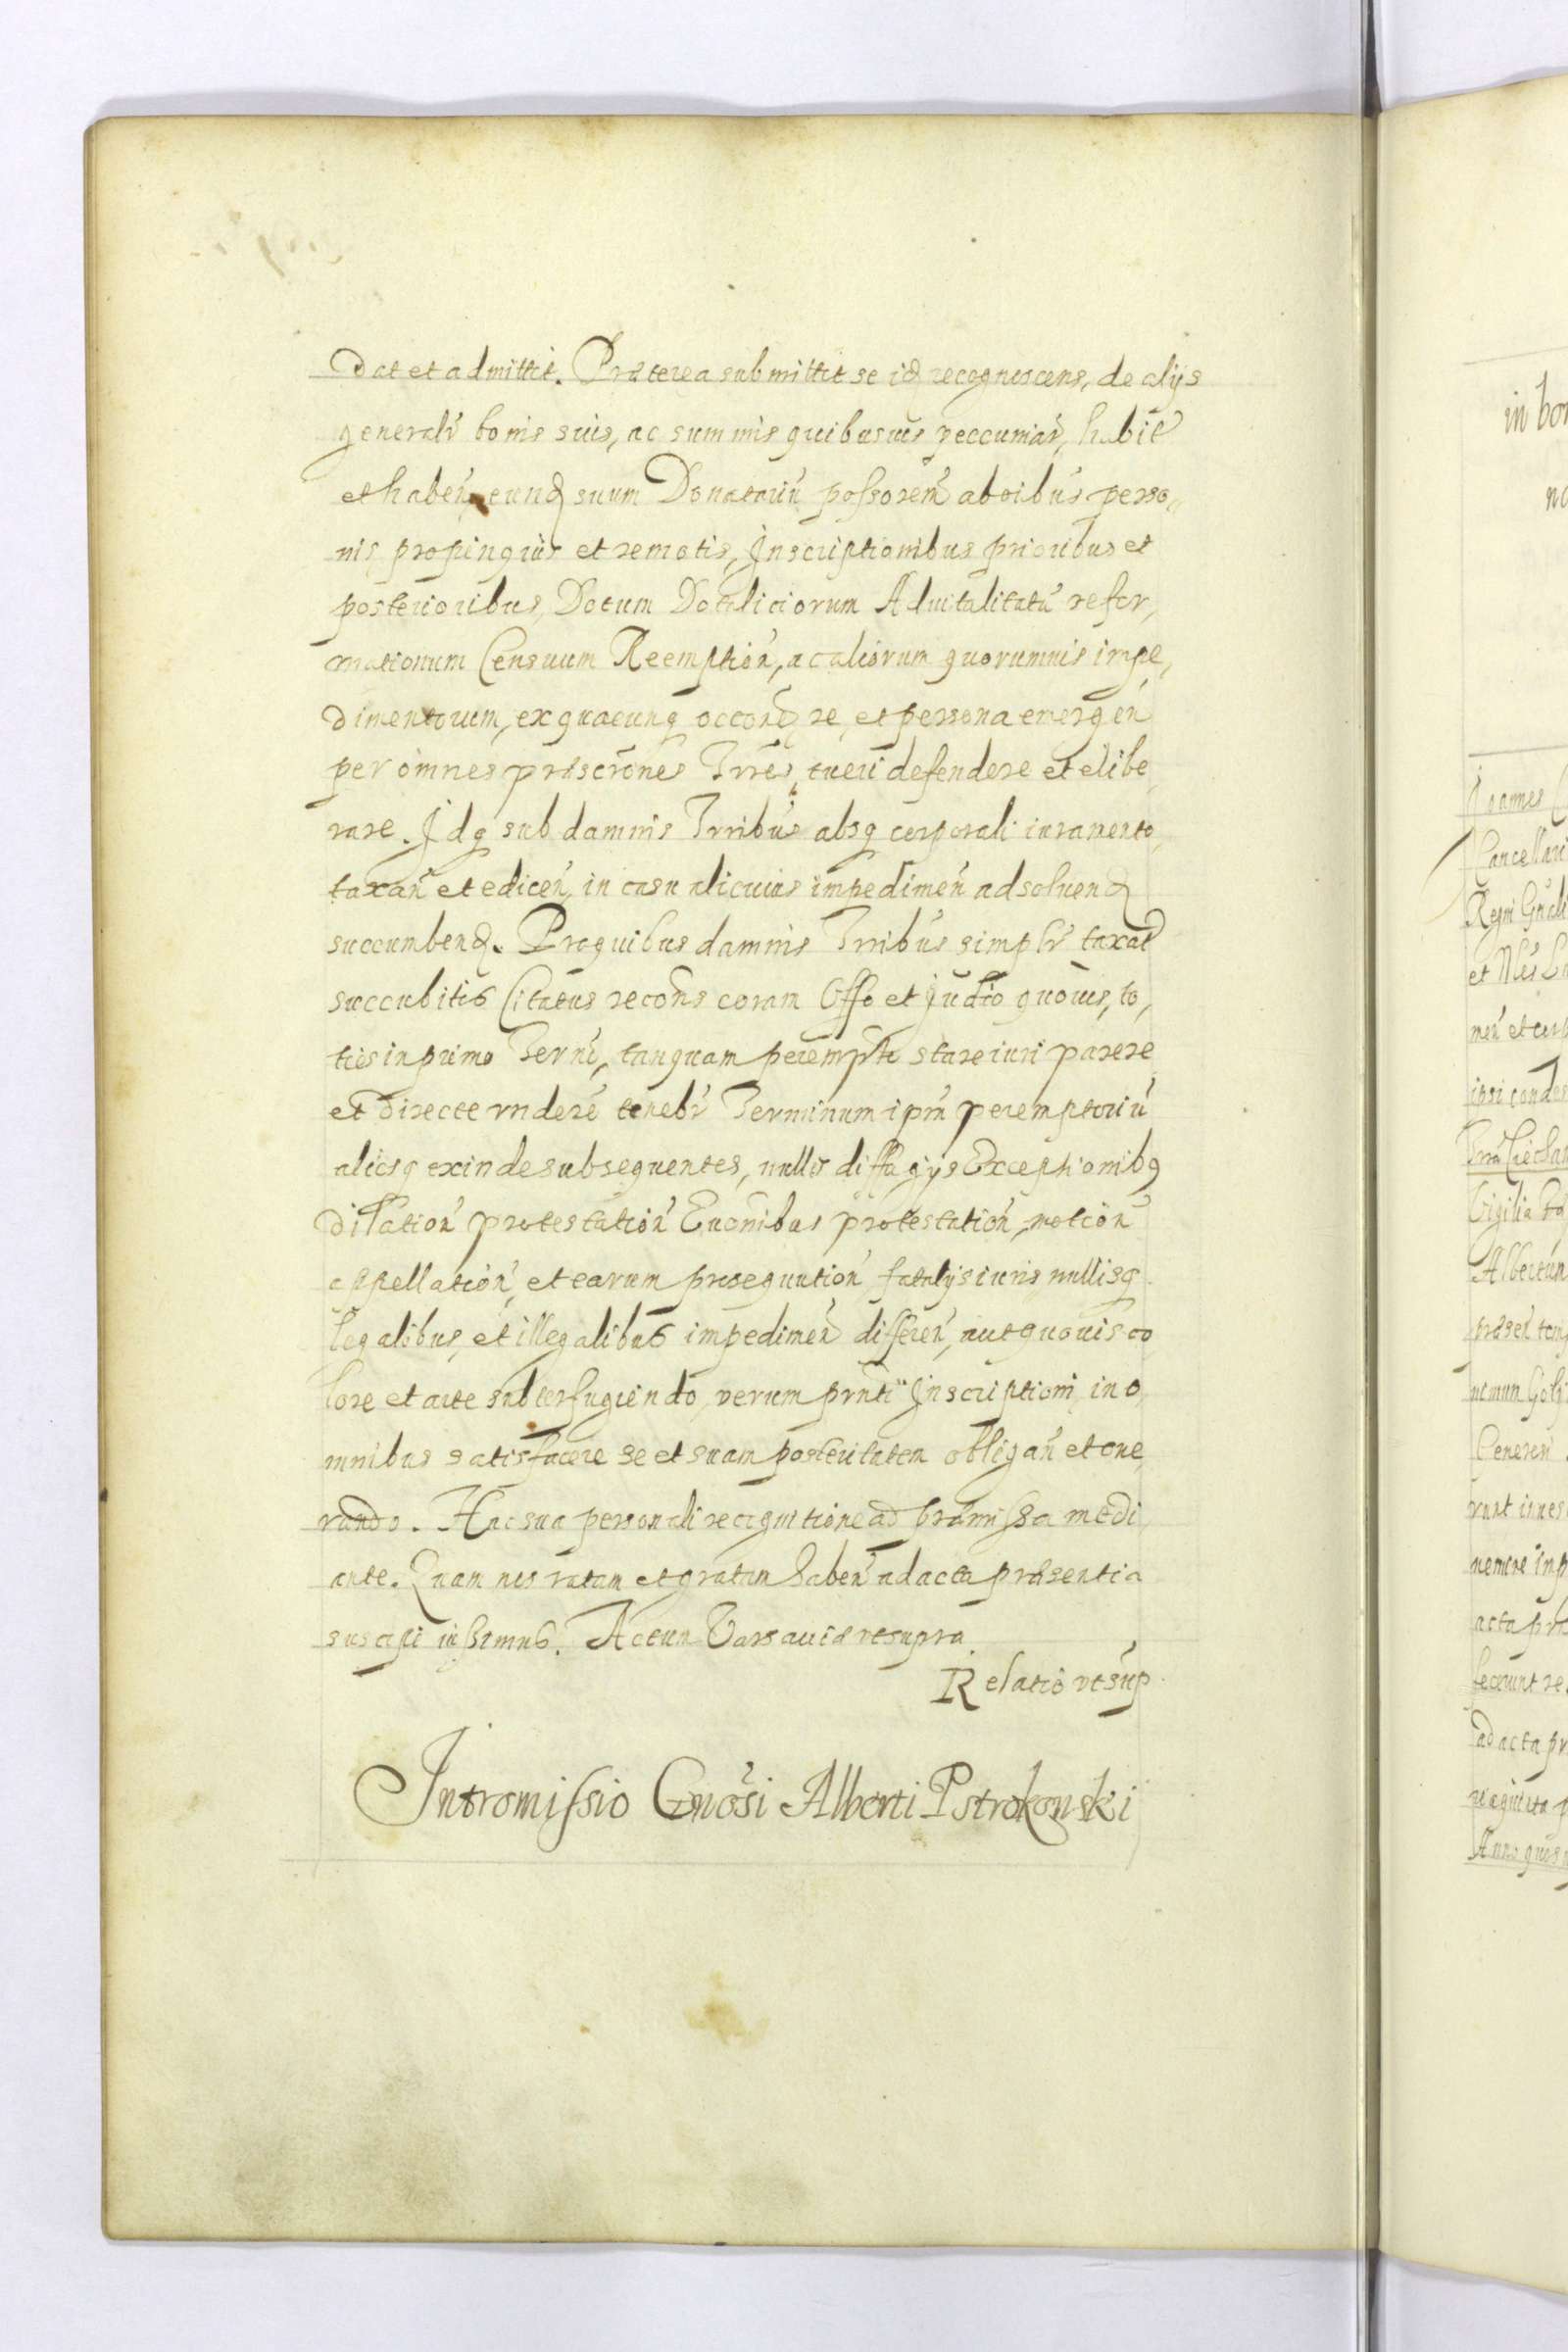 Dat et admittit. Præterea submittit se id recognoscens, de alijs
generalr bonis suis, ac summis quibusuis peccuniar, habit
et haben, eund suum Donatariu possorem ab oibus perso,,
nis propinquis et remotis, Inscriptionibus prioribus et
posterioribus, Dotum Dotaliciorum Aduitalitatu refor,
mationum Censuum Reemption, ac aliorum quorumuis impe,
dimentorum, ex quacunq occone, re, et persona emergen
per omnes præscrones Trres, tueri defendere et elibe
rare. Idq sub damnis Trribus absq corporali iuramento,
taxan et edicen, in casu alicuius impedimen ad soluend
succumbend. Pro quibus damnis Trribus simplr taxat
succubitis Citatus recons coram Offo et Judtio quouis, to,
ties in primo Termi, tanquam perempto stare iuri parere
et directe rndere tenebr Terminum ipm peremptoriu
aliosq exinde subsequentes, nullis diffugijs Exceptionibq
dilation protestation Euonibus protestation, motion
appellation, et earum prosequution fatalijs iuris nullisq
legalibus, et illegalibus impedimen differen, aut quouis co
lore et arte subterfugiendo, verum prnti Inscriptioni, in o,
mnibus satisfacere se et suam posteritatem obligan et one,
rando. Hac sua personali recognitione ad præmissa medi
ante. Quam nos ratam et gratam haben ad acta præsentia
suscipi iussimus. Actum Varsauiæ vt supra
Relatio vt sup
Intromissio Gnosi Alberti Pstrokonski
in bon
Joannes
Cancellari
Regni
et
men et cert
ipsi condes
Vigilia
Albertum
præsen
runt
acta præ
fecerunt re
ad acta pr